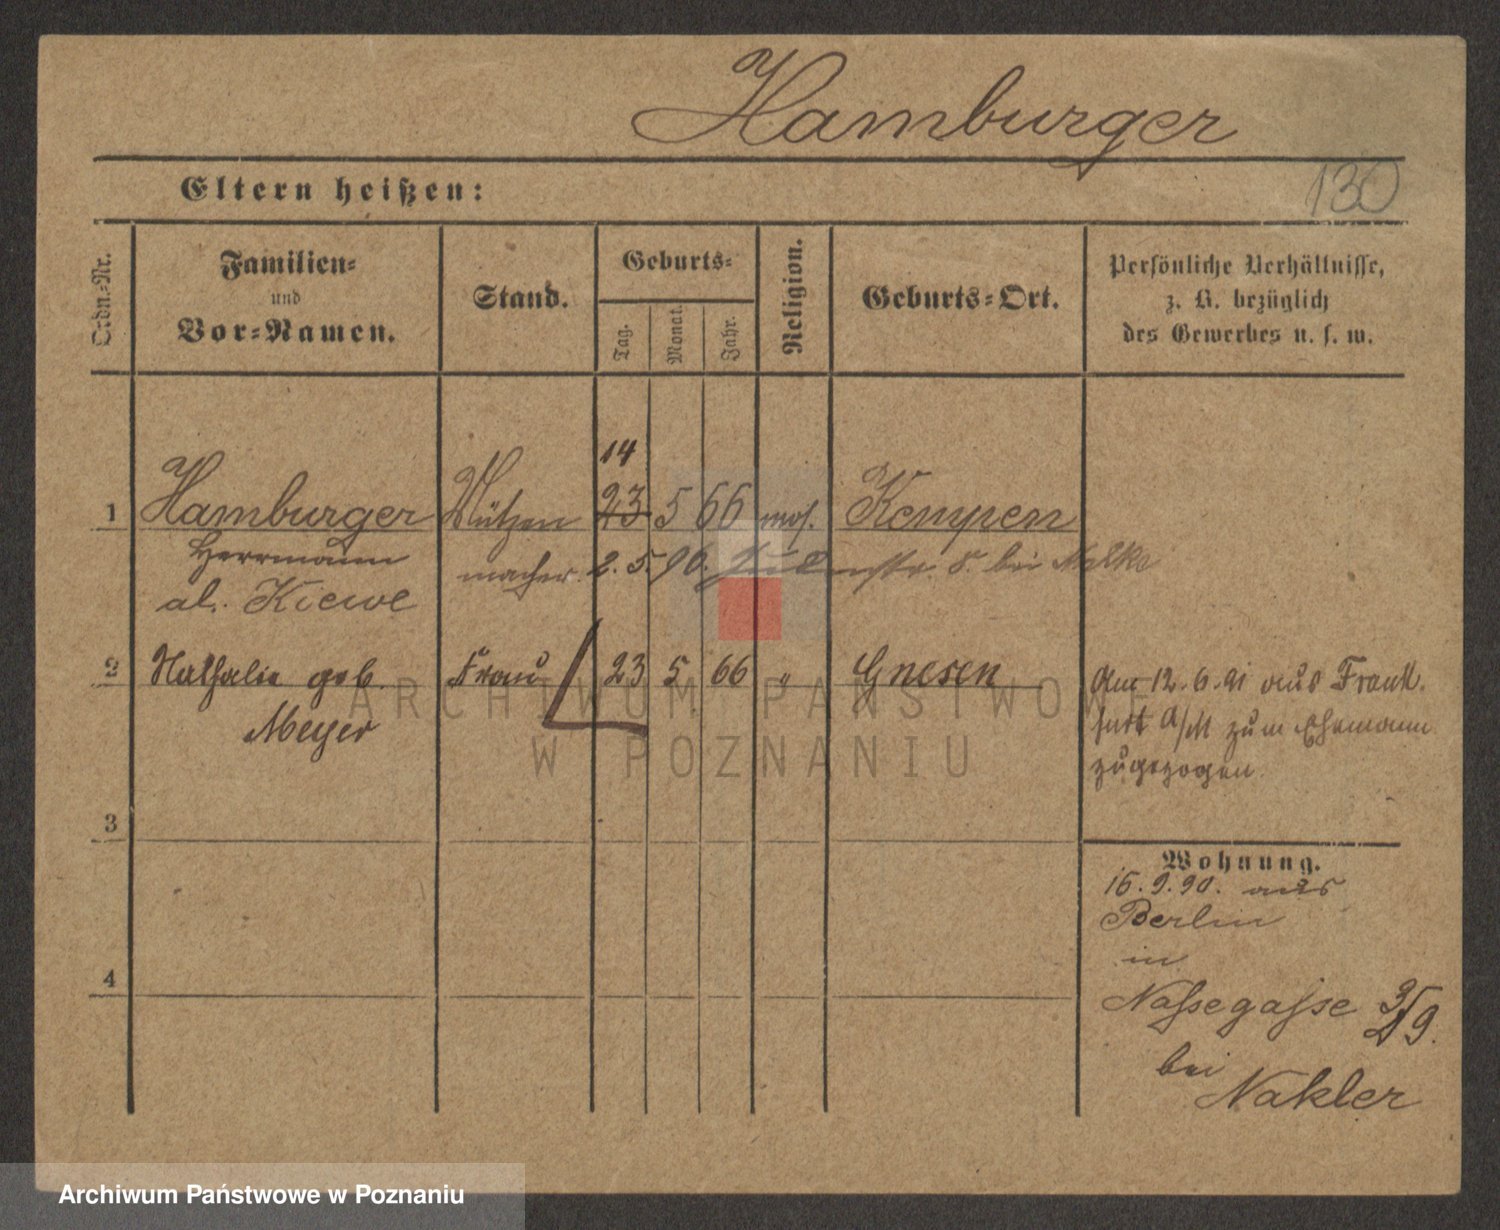 Hamburger
130
Eltern heißen:
Ordn.-Nr.
Familien-
und
Vor-Namen.
Stand.
Geburts-
Tag.
Monat.
Jahr.
Religion.
Geburts-Ort.
Persönliche Verhältnisse,
z. B. bezüglich
des Gewerbes u. s. w.
14
1 Hamburger Mützen 23 5 66 mos. Kempen
Herrmann macher. 2. 5. 90. 8. bei
al. Kiewe
2 Nathalie geb. Frau 23 5 66 " Gnesen
Meyer
Am 12. 6. 91 aus Frank.
furt A/M zum Ehemann
zugezogen.
3
Wohnung.
16. 9. 90. aus
Berlin
in
4
Nassegasse 3/IV 9.
bei
Nakler
ARCHIWUM PAŃSTWOWE
W POZNANIU
Archiwum Państwowe w Poznaniu